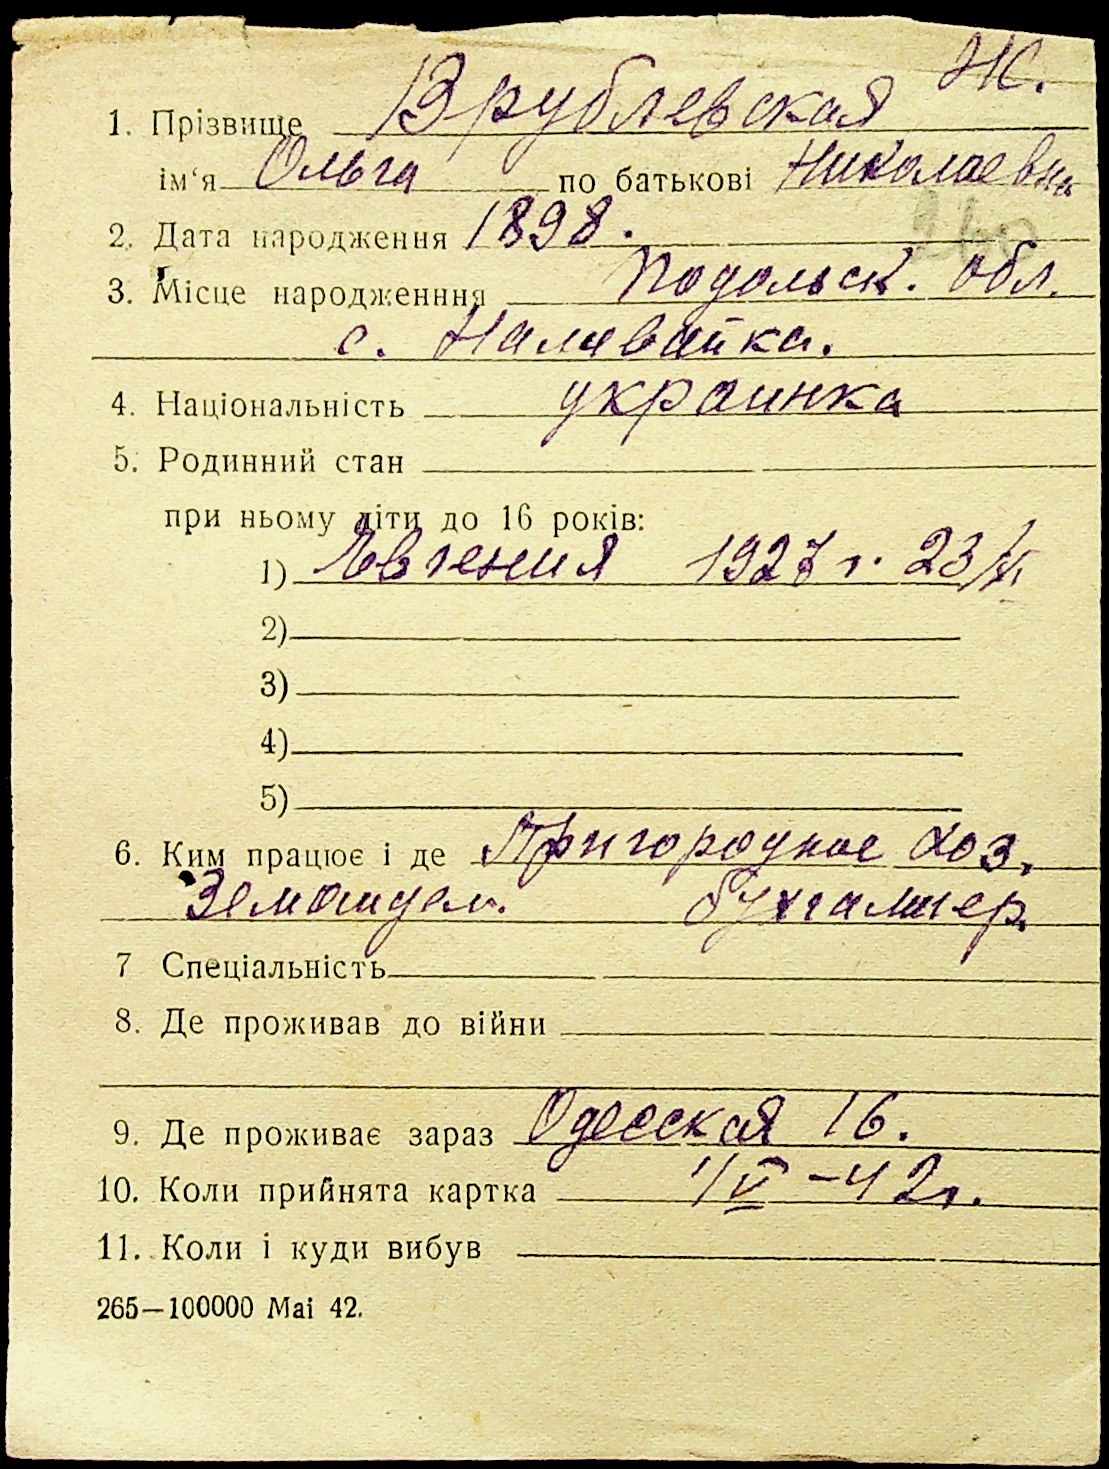 Ж.
1. Прізвище Врублевская
ім‘я Ольга по батькові Николаевна
2. Дата народження 1898.
3. Місце народженння Подольск. обл.
с. Наливайка.
4. Національність украинка
5. Родинний стан
при ньому діти до 16 років:
1) Евгения 1927 г. 23/VI
2)
3)
4)
5)
6. Ким працює і де Пригородное хоз.
бухгалтер.
7 Спеціальність
8. Де проживав до війни
9. Де проживає зараз Одесская 16.
10. Коли прийнята картка 1/V –42г.
11. Коли і куди вибув
265—100000 Mai 42.